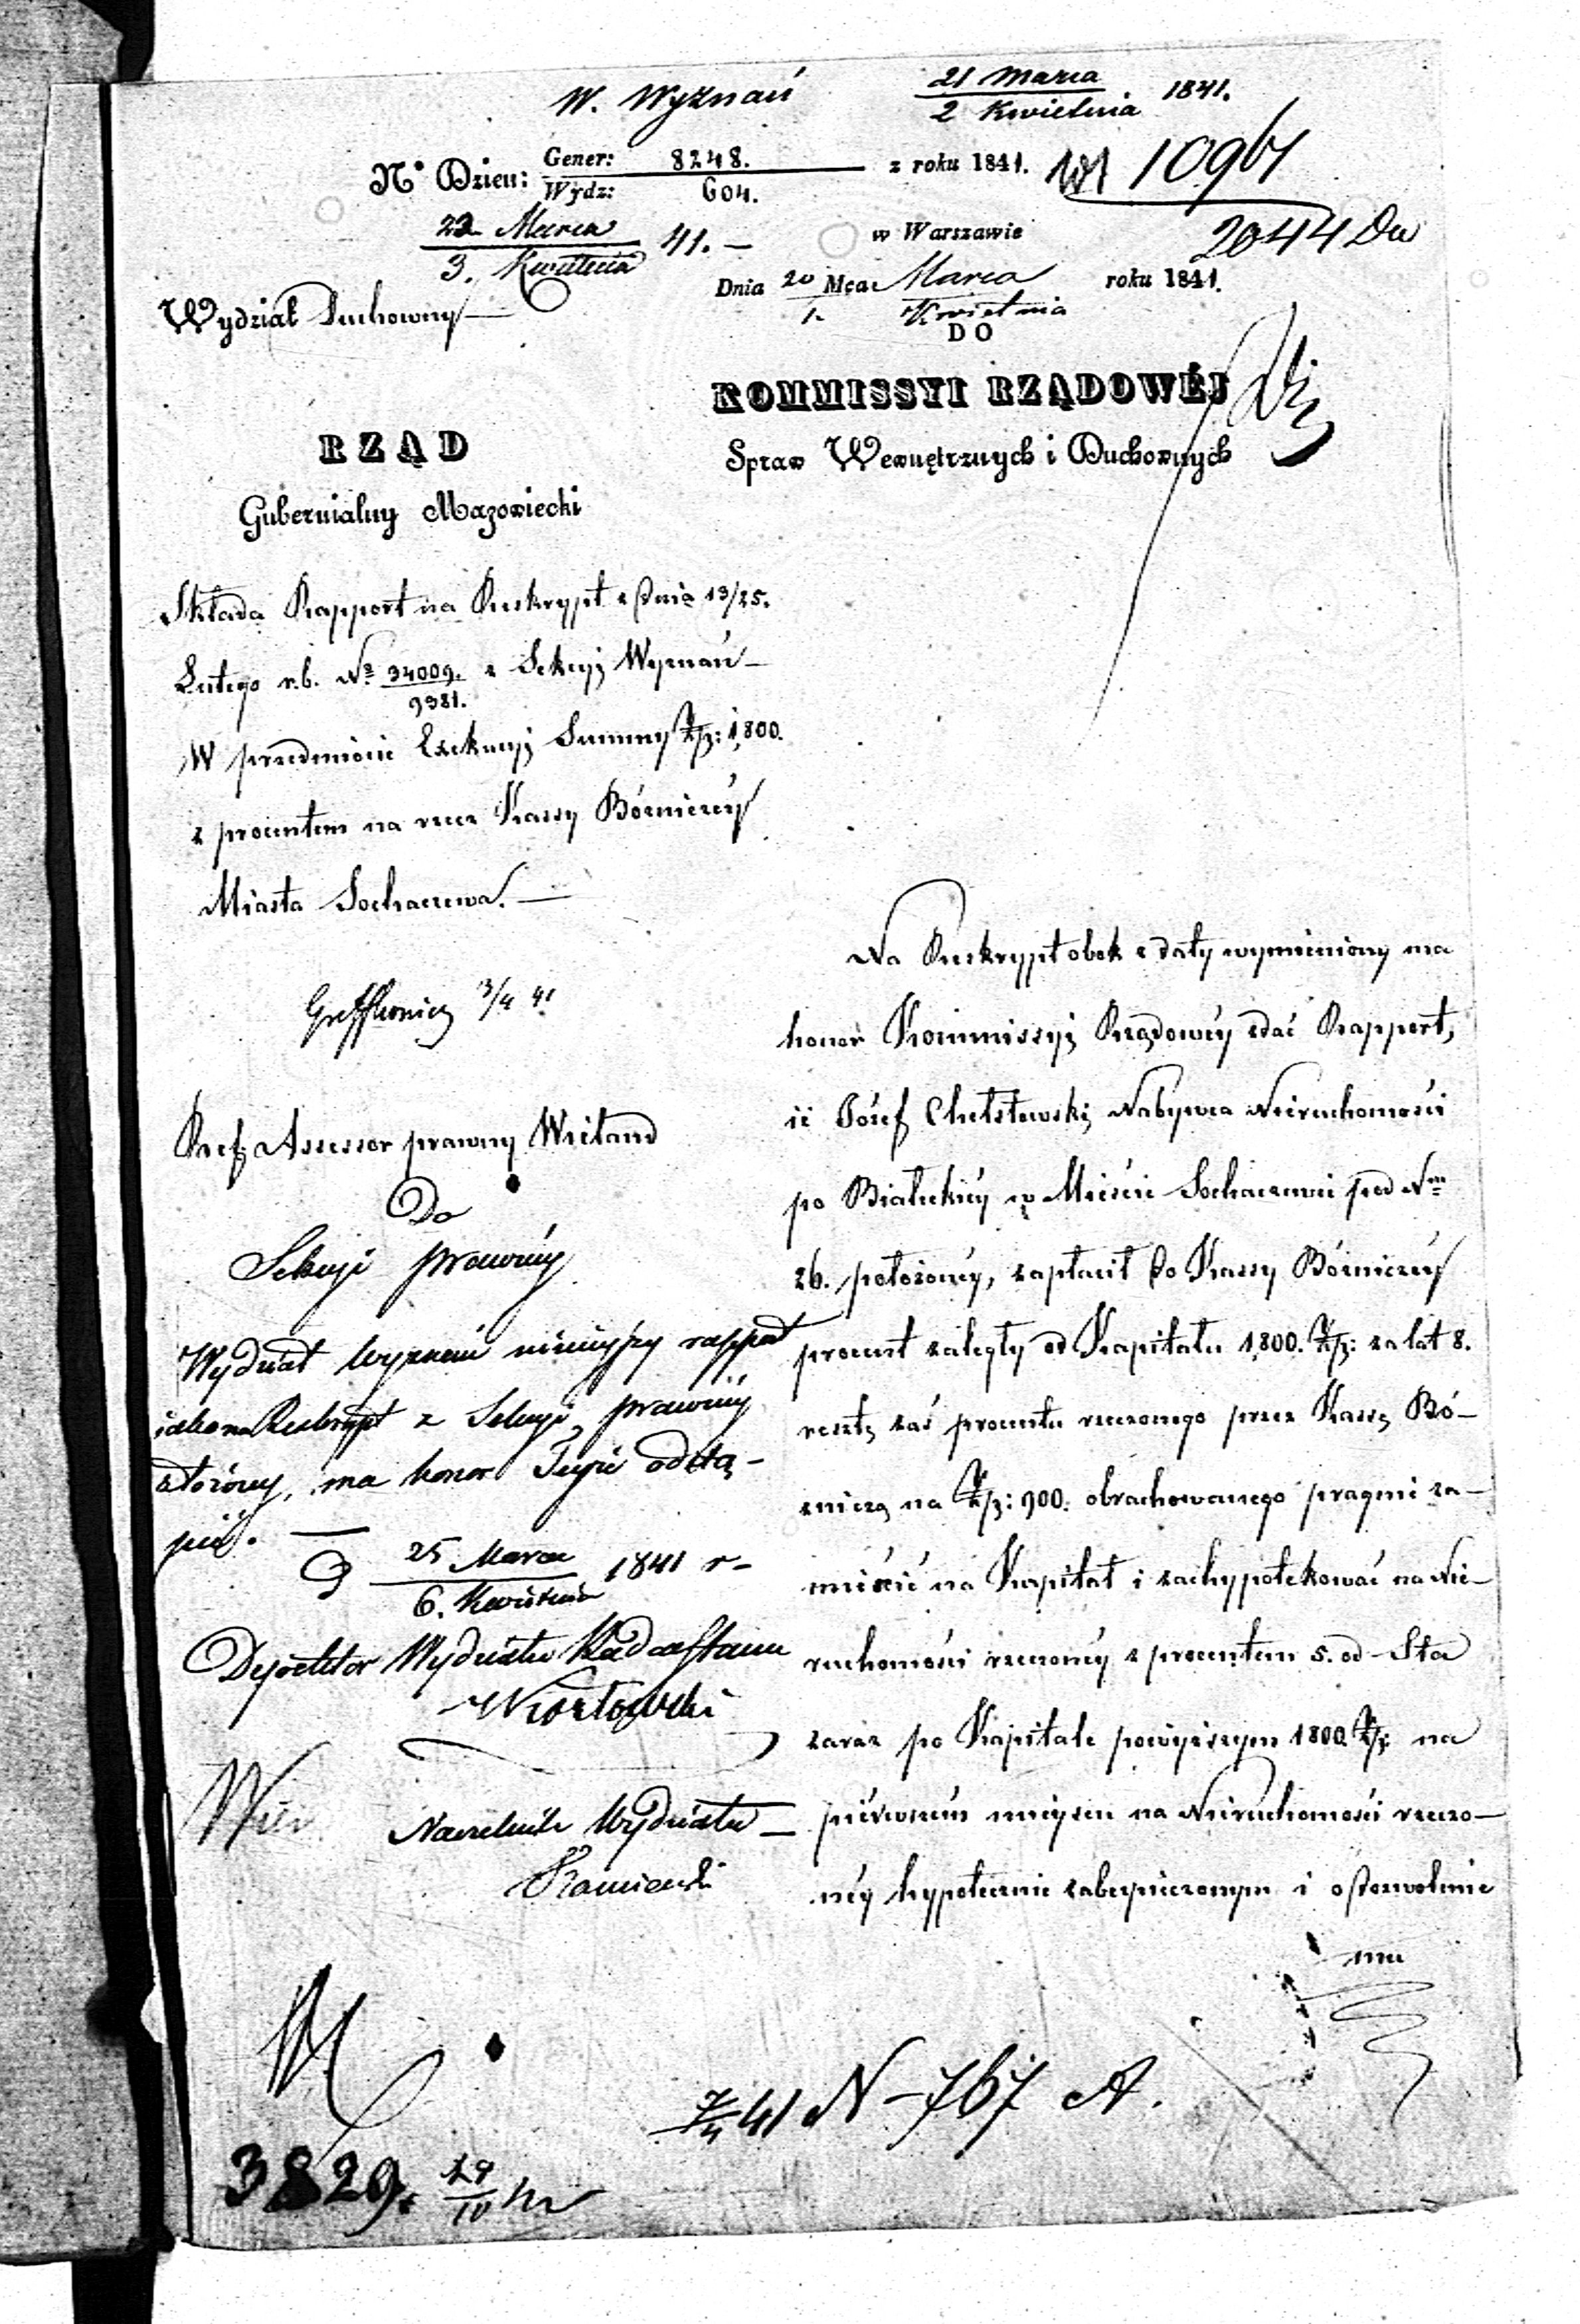 W. Wyznań
21 Marca
2 Kwietnia 1841.
No Dzien: Gener: 8248. z roku 1841.
Wydz: 604.
10967
2044
22 Marca
3. Kwietnia 41. —
w Warszawie
Dnia 20 Mca Marca roku 1841.
1. Kwietnia
Wydział Duchowny —
DO
KOMMISSYI RZĄDOWÉJ
Spraw Wewnętrznych i Duchownych
RZĄD
Gubernialny Mazowiecki
Składa Rapport na Reskrypt z dnia 13/25.
Lutego r.b. No 34009. z Sekcyi Wyznań —
9381.
W przedmiocie Exekucyi Summy Złp: 1,800.
z procentem na rzecz Kassy Bóżniczéy
Miasta Sochaczewa. —
3/4 41
Ref. Assessor prawny Wieland
Do
Sekcyi prawnéy
Wydział wyznań niniejszy rapport
jako na Reskrypt z Sekcyi prawnéy
złożony, ma honor Teyże odstą-
pić. —
D 25 Marca 1841 r -
6. Kwietnia
Dyrektor Wydziału Radca Stanu
Naczelnik Wydziału —
Kamieński
Na Reskrypt obok z daty wymieniony ma
honor Kommissyi Rządowéy zdać Rapport,
iż Józef Nabywca Nieruchomości
po Białeckiéy w Mieście Sochaczewie pod Nm
26. położonéy, zapłacił do Kassy Bóżniczéy
procent zaległy od Kapitału 1,800. Złp: za lat 8.
resztę zaś procentu rzeczonego przez Kassę Bó-
zniczą na Złp: 900. obrachowanego pragnie za-
mienić na Kapitał i zahypotekować na Nie-
ruchomości rzeczonéy z procentem 5. od Sta
zaraz po Kapitale powyższym 1800 Złp: na
pierwszém mieyscu na Nieruchomości rzeczo-
néy hypotecznie zabezpieczonym i o dozwolenie
mu
7/4 41 N - 767 A.
3829. 29/IV